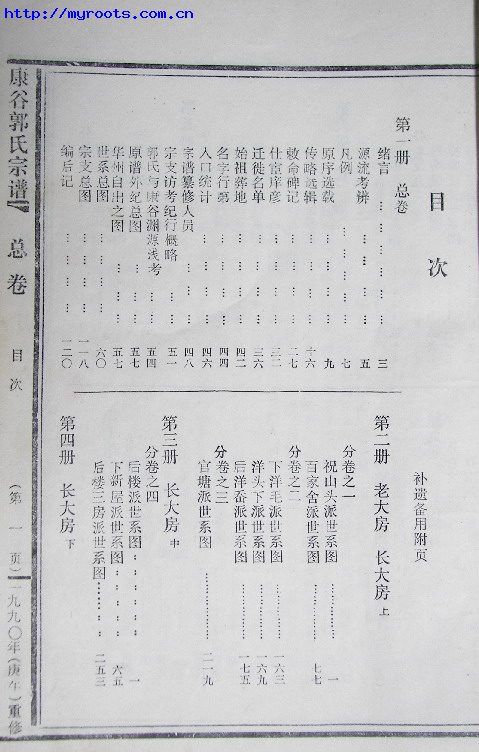 http://myroots.com.cn
目 次
第一册 总卷
绪言 三
源流考辨 五
凡例 七
原序选载 九
传略选辑 十六
敕命碑记 二七
仕宦庠彦 三二
迁徙名单 三六
始祖葬地 四二
名字行第 四四
人口统计 四六
宗谱纂修人员 四八
宗支访考纪行概略 五一
郭氏与康谷渊源浅考 五四
原谱外纪总图 五七
华州自出之图 五七
世系总图 六〇
宗支总图 一一八
编后记 一二〇
补遗备用附页
第二册 老大房 长大房 上
分卷之一
祝山头派世系图 一
百家舍派世系图 七七
分卷之二
下洋毛派世系图 一六三
洋头下派世系图 一六九
后洋岙派世系图 一七五
分卷之三
官塘派世系图 二一九
第三册 长大房 中
分卷之四
后楼派世系图 一
下新屋派世系图 六五
后楼三房派世系图 二五三
第四册 长大房 下
康谷郭氏宗谱 总卷 目次 (第一页) 一九九〇年(庚午)重修